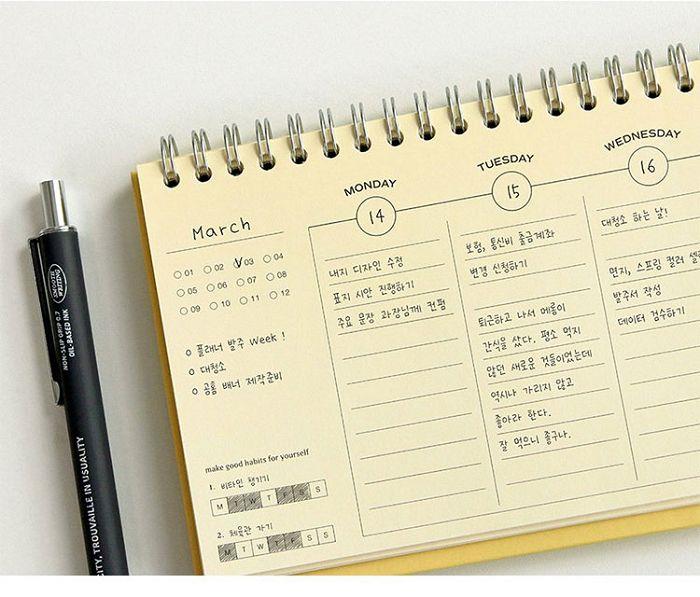 March
01 02 03 04
05 06 07 08
09 10 11 12
플래너 발주 week !
대청소
공홈 배너 제작준비
make good habits for yourself
1. 비타민 챙기기
M T W T F S S
2. 체육관 가기
M T W T F S S
MONDAY
14
내지 디자인 수정
표지 시안 진행하기
주요 문장 과장님께 컨펌
TUESDAY
15
보험, 통신비 출금계좌
변경 신청하기
퇴근하고 나서 메롱이
간식을 샀다. 평소 먹지
않던 새로운 것들이었는데
역시나 가리지 않고
좋아라 한다.
잘 먹으니 좋구나.
WEDNESDAY
16
대청소 하는 날!
면지, 스프링 컬러 셀렉
발주서 작성
데이터 검수하기
SMOOTH WRITING
NON-SLIP GRIP 0.7
OIL-BASED INK
CITY, TROUVAILLE IN USUALITY